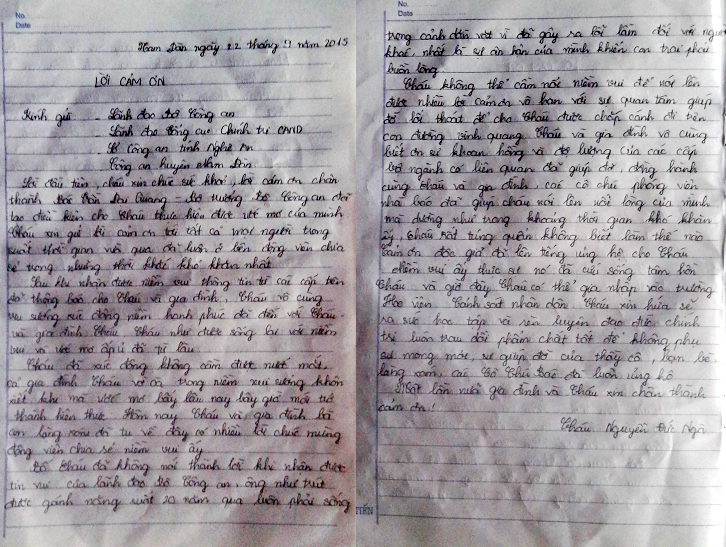 No.
Date
Nam Đàn ngày 22 tháng 9 năm 2015
LỜI CẢM ƠN
Kính gửi - Lãnh đạo Bộ Công an
Lãnh đạo Tổng cục Chính trị CAND
Sở Công an tỉnh Nghệ An
Công an huyện Nam Đàn
Lời đầu tiên, cháu xin chúc sức khỏe, lời cảm ơn chân
thành Bác Trần Đại Quang - Bộ trưởng Bộ Công an đã
tạo điều kiện cho Cháu thực hiện được ước mơ của mình
Cháu xin gửi lời cảm ơn tới tất cả mọi người trong
suốt thời gian vừa qua đã luôn ở bên động viên chia
sẻ trong những thời khắc khó khăn nhất
Sau khi nhận được niềm vui thông tin từ các cấp trên
đã thông báo cho Cháu và gia đình, Cháu vô cùng
vui sướng xúc động niềm hạnh phúc đã đến với Cháu
và gia đình Cháu. Cháu như được sống lại với niềm
vui và ước mơ ấp ủ đã từ lâu
Cháu đã xúc động không cầm được nước mắt,
cả gia đình Cháu vỡ òa trong niềm vui sướng khôn
xiết khi mà ước mơ bấy lâu nay bây giờ mới trở
thành hiện thực. Hôm nay Cháu và gia đình bà
con làng xóm đã tụ về đây có nhiều lời chúc mừng
động viên chia sẻ niềm vui ấy
Bố Cháu đã không nói thành lời khi nhận được
tin vui của lãnh đạo Bộ Công an, ông như trút
được gánh nặng suốt 20 năm qua luôn phải sống
No.
Date
trong cảnh dằn vặt vì đã gây ra lỗi lầm đối với người
khác, nhất là sự ân hận của mình khiến con trai phải
buồn lòng
Cháu không thể cầm nổi niềm vui để nói lên
được nhiều lời cảm ơn vô bạn với sự quan tâm giúp
đỡ lối thoát để cho Cháu được chắp cánh đi trên
con đường vinh quang. Cháu và gia đình vô cùng
biết ơn sự khoan hồng và độ lượng của các cấp
bộ ngành có liên quan đã giúp đỡ, đồng hành
cùng Cháu và gia đình, các cô chú phóng viên
nhà báo đã giúp cháu nói lên nỗi lòng của mình
mà dường như trong khoảng thời gian khó khăn
ấy, Cháu rất túng quẫn không biết làm thế nào
cảm ơn độc giả đã lên tiếng ủng hộ cho Cháu
niềm vui ấy thực sự nó đã cứu sống tâm hồn
Cháu và giờ đây Cháu có thể gia nhập vào trường
Học viện Cảnh sát nhân dân. Cháu xin hứa sẽ
ra sức học tập và rèn luyện đạo đức chính
trị luôn trau dồi phẩm chất tốt để không phụ
sự mong mỏi, sự giúp đỡ của thầy cô, bạn bè
làng xóm, các Cô Chú Bác đã luôn ủng hộ
Một lần nữa gia đình và Cháu xin chân thành
cảm ơn!
Cháu Nguyễn Đức Ngà
TIẾN